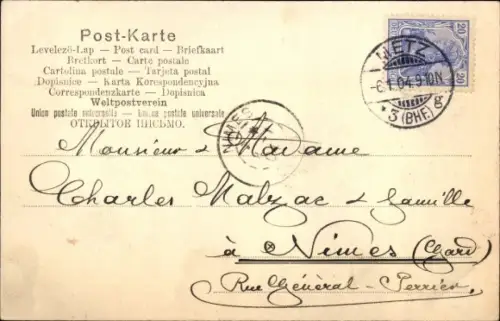 Post-Karte
Levelező-Lap — Post card — Briefkaart
Brefkort — Carte postale
Cartolina postale — Tarjeta postal
Dopisnice — Karta Korespondencyjna
Correspondenzkarte — Dopisnica
Weltpostverein
Union postale universelle —
ОТКРЫТОЕ ПИСЬМО.
20 20
20 20
METZ
-6.1.04.9-10N
g
* 3 (BHF.)
NIMES
Monsieur & Madame
Charles Malzac & famille
à Nîmes (Gard)
Rue Général-Perrier